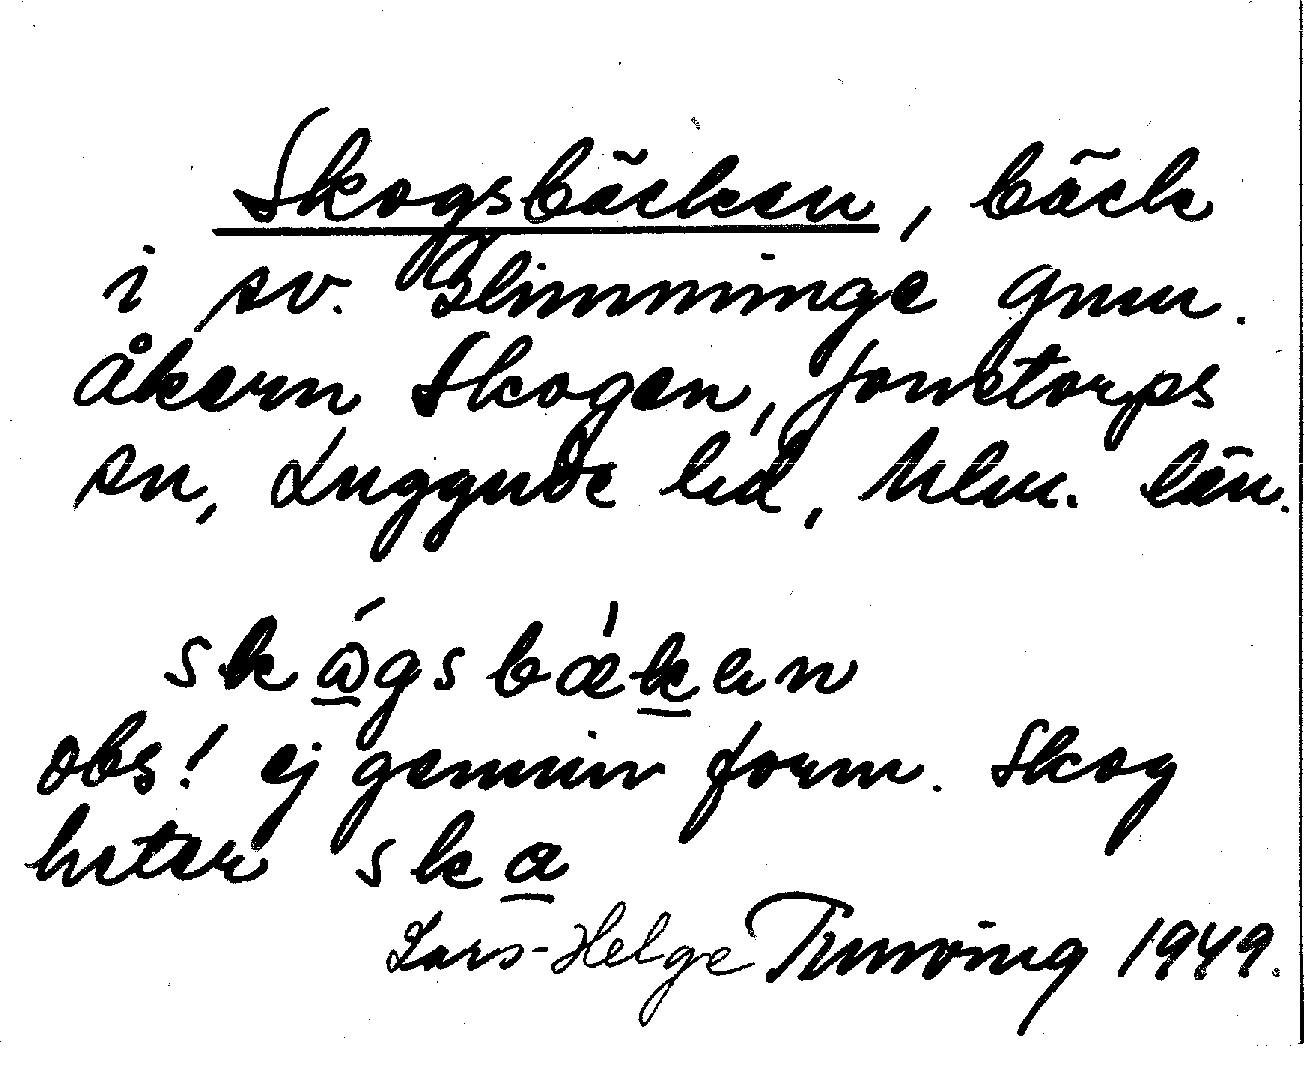 Skogsbäcken, bäck
i sv. Glimminge gnm.
åkern Skogen, Jonstorps
sn, Luggude hd, Mlm. län.
skågsbæken
obs! ej genuin form. Skog
heter ska
Lars-Helge 1949.